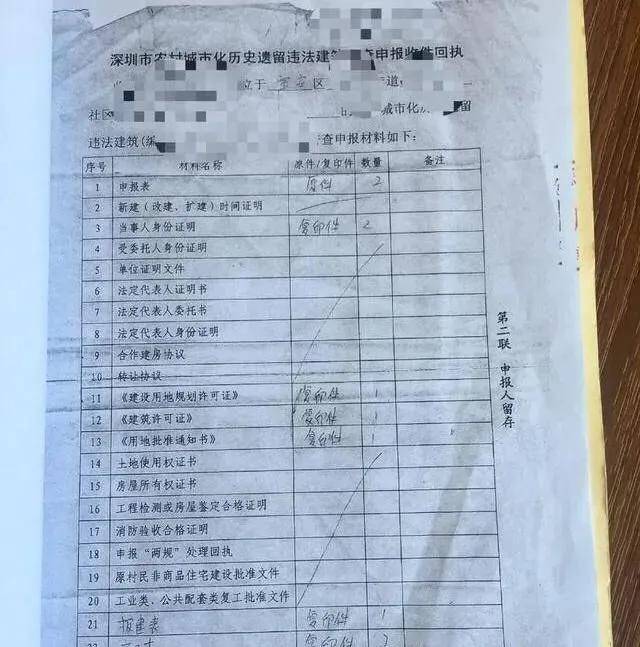 深圳市农村城市化历史遗留违法建筑 查申报收件回执
位于 宝安区 道,
社区 城市化 留
违法建筑(编 查申报材料如下:
序号 材料名称 原件/复印件 数量 备注
1 申报表 原件 2
2 新建(改建、扩建)时间证明
3 当事人身份证明 复印件 2
4 受委托人身份证明
5 单位证明文件
6 法定代表人证明书
7 法定代表人委托书
8 法定代表人身份证明
9 合作建房协议
10 转让协议
11 《建设用地规划许可证》 复印件 1
12 《建筑许可证》 复印件 1
13 《用地批准通知书》 复印件 1
14 土地使用权证书
15 房屋所有权证书
16 工程检测或房屋鉴定合格证明
17 消防验收合格证明
18 申报“两规”处理回执
19 原村民非商品住宅建设批准文件
20 工业类、公共配套类复工批准文件
21 报建表 复印件 1
22 复印件
第二联 申报人留存